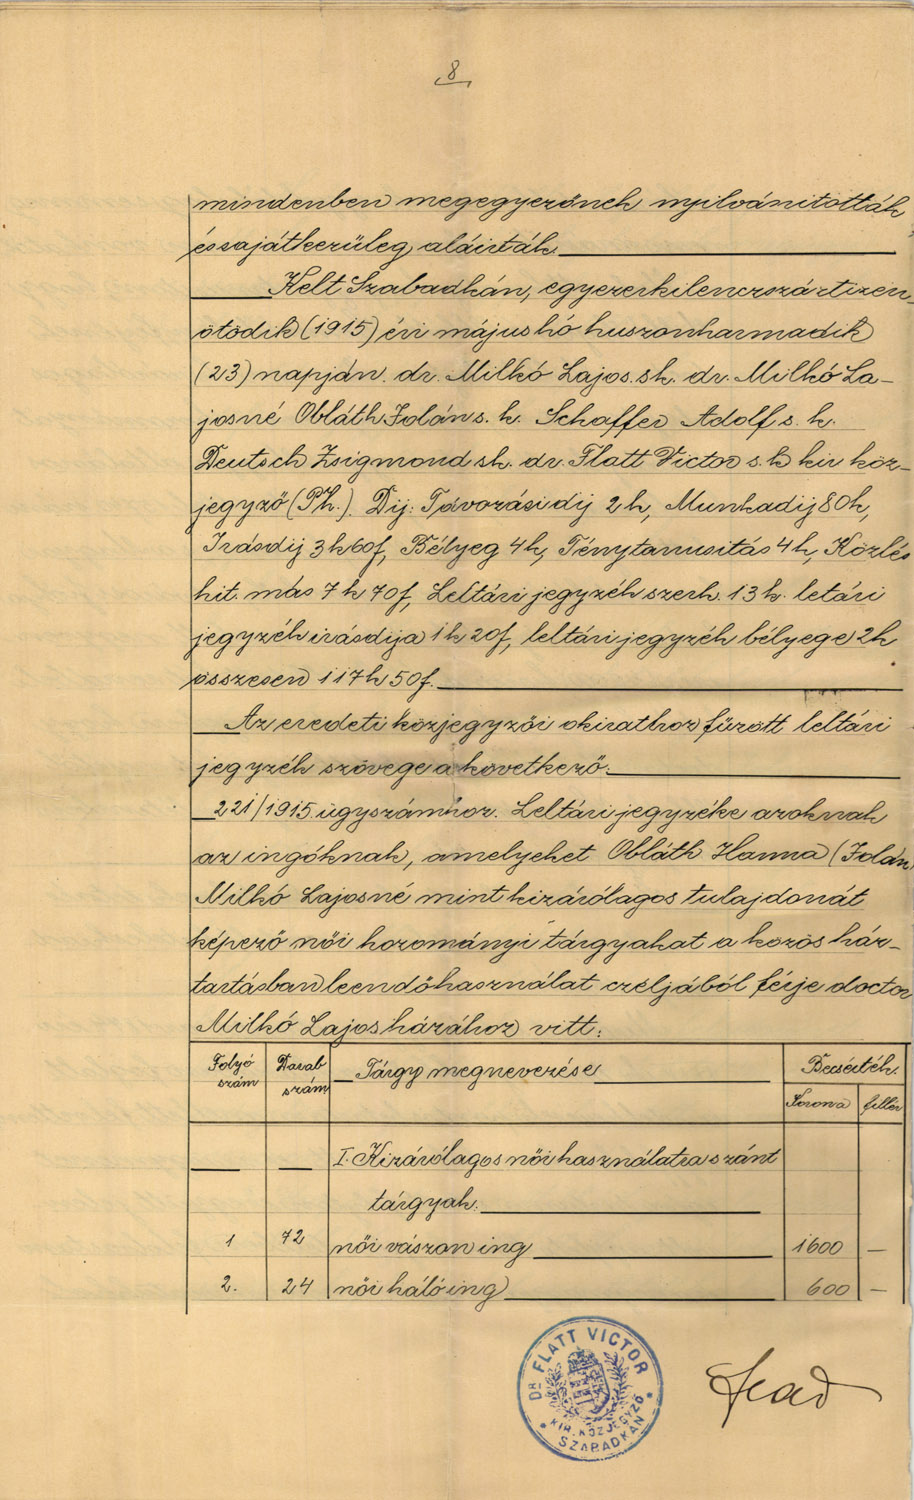 8
mindenben megegyezőnek nyilvánitották
és sajátkezüleg aláirták.
Kelt Szabadkán, egyezerkilenczszáztizen-
ötödik (1915) évi május hó huszonharmadik
(23) napján. dr. Milkó Lajos. sk. dr. Milkó La-
josné Obláth Jolán s. k. Schaffer Adolf s. k.
Deutsch Zsigmond sk. dr. Flatt Victor s. k kir köz-
jegyző (Ph.). Dij: Távozási dij 2 k, Munkadij 80 k,
Irásdij 3 k 60 f, Bélyeg 4 k, Ténytanusitás 4 k, Közlés
hit. más 7 k 70 f, Leltári jegyzék szerk. 13 k. letári
jegyzék irásdija 1 k 20 f, leltári jegyzék bélyege 2 k
összesen 117 k 50 f.
Az eredeti közjegyzői okirathoz füzött leltári
jegyzék szövege a következő:
221/1915 ügyszámhoz. Leltári jegyzéke azoknak
az ingóknak, amelyeket Obláth Hanna (Jolán
Milkó Lajosné mint kizárólagos tulajdonát
képező női hozományi tárgyakat a közösház-
tartásban leendő használat czéljából férje doctor
Milkó Lajos házához vitt:
Folyó szám Darab szám Tárgy megnevezése Becsérték.
Korona fillér
I. Kizárólagos női használatra szánt
tárgyak.
1 72 női vászon ing 1600 —
2. 24 női háló ing 600 —
DR FLATT VICTOR
KIR. KÖZJEGYZŐ
SZABADKÁN